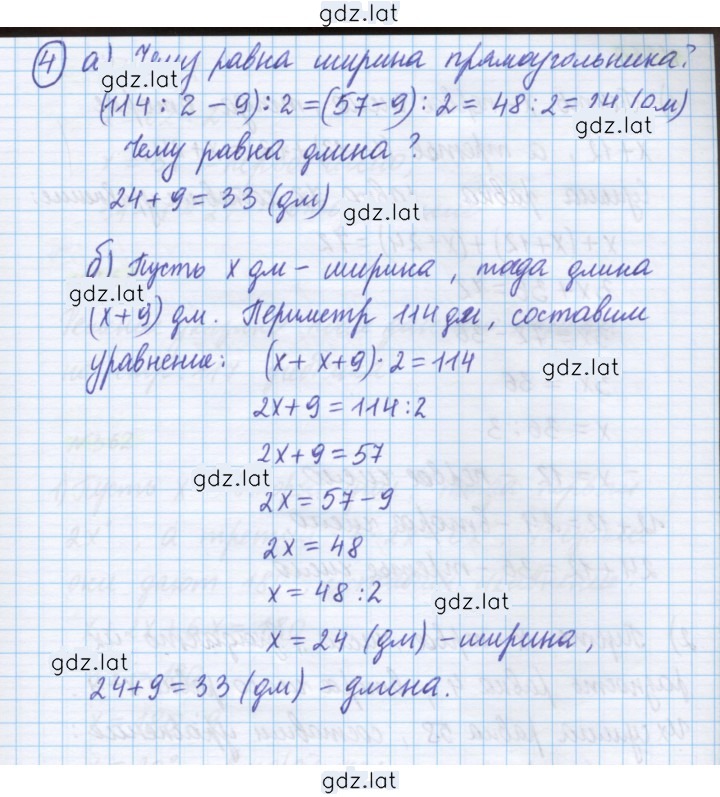 gdz.lat
4 а) Чему равна ширина прямоугольника?
gdz.lat
(114 : 2 - 9) : 2 = (57 - 9) : 2 = 48 : 2 = 24 (дм)
gdz.lat
Чему равна длина?
24 + 9 = 33 (дм)
gdz.lat
б) Пусть x дм - ширина, тогда длина
gdz.lat
(x + 9) дм. Периметр 114 дм, составим
уравнение: (x + x + 9) · 2 = 114
gdz.lat
2x + 9 = 114 : 2
2x + 9 = 57
gdz.lat
2x = 57 - 9
2x = 48
x = 48 : 2
gdz.lat
x = 24 (дм) - ширина,
gdz.lat
24 + 9 = 33 (дм) - длина.
gdz.lat